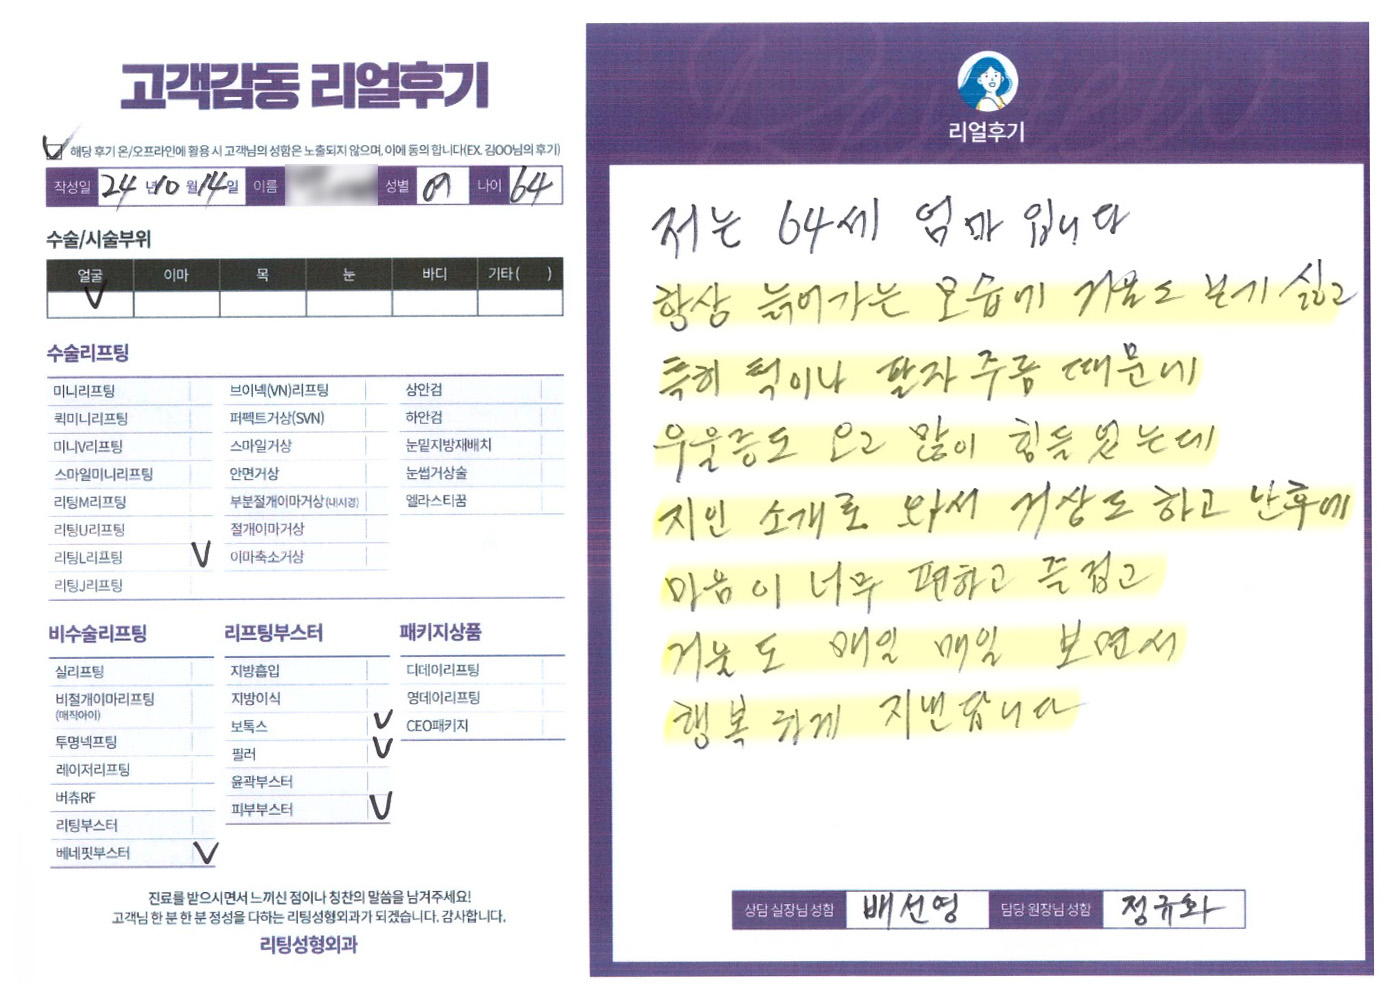 고객감동 리얼후기
해당 후기 온/오프라인에 활용 시 고객님의 성함은 노출되지 않으며, 이에 동의 합니다(EX. 김OO님의 후기)
작성일 24년 10월 14일 이름 성별 여 나이 64
수술/시술부위
얼굴 이마 목 눈 바디 기타( )
수술리프팅
미니리프팅 브이넥(VN)리프팅 상안검
퀵미니리프팅 퍼펙트거상(SVN) 하안검
미니V리프팅 스마일거상 눈밑지방재배치
스마일미니리프팅 안면거상 눈썹거상술
리팅M리프팅 부분절개이마거상(내시경) 엘라스티꿈
리팅U리프팅 절개이마거상
리팅L리프팅 이마축소거상
리팅J리프팅
비수술리프팅 리프팅부스터 패키지상품
실리프팅 지방흡입 디데이리프팅
비절개이마리프팅 지방이식 영데이리프팅
(매직아이) 보톡스 CEO패키지
투명넥프팅 필러
레이저리프팅 윤곽부스터
버츄RF 피부부스터
리팅부스터
베네핏부스터
진료를 받으시면서 느끼신 점이나 칭찬의 말씀을 남겨주세요!
고객님 한 분 한 분 정성을 다하는 리팅성형외과가 되겠습니다. 감사합니다.
리팅성형외과
리얼후기
저는 64세 엄마 입니다
항상 늙어가는 모습에 거울도 보기 싫고
특히 턱이나 팔자 주름 때문에
우울증도 오고 많이 힘들었는데
지인 소개로 와서 거상도 하고 난후에
마음이 너무 편하고 즐겁고
거울도 매일 매일 보면서
행복하게 지낸답니다
상담 실장님 성함 배선영 담당 원장님 성함 정규화